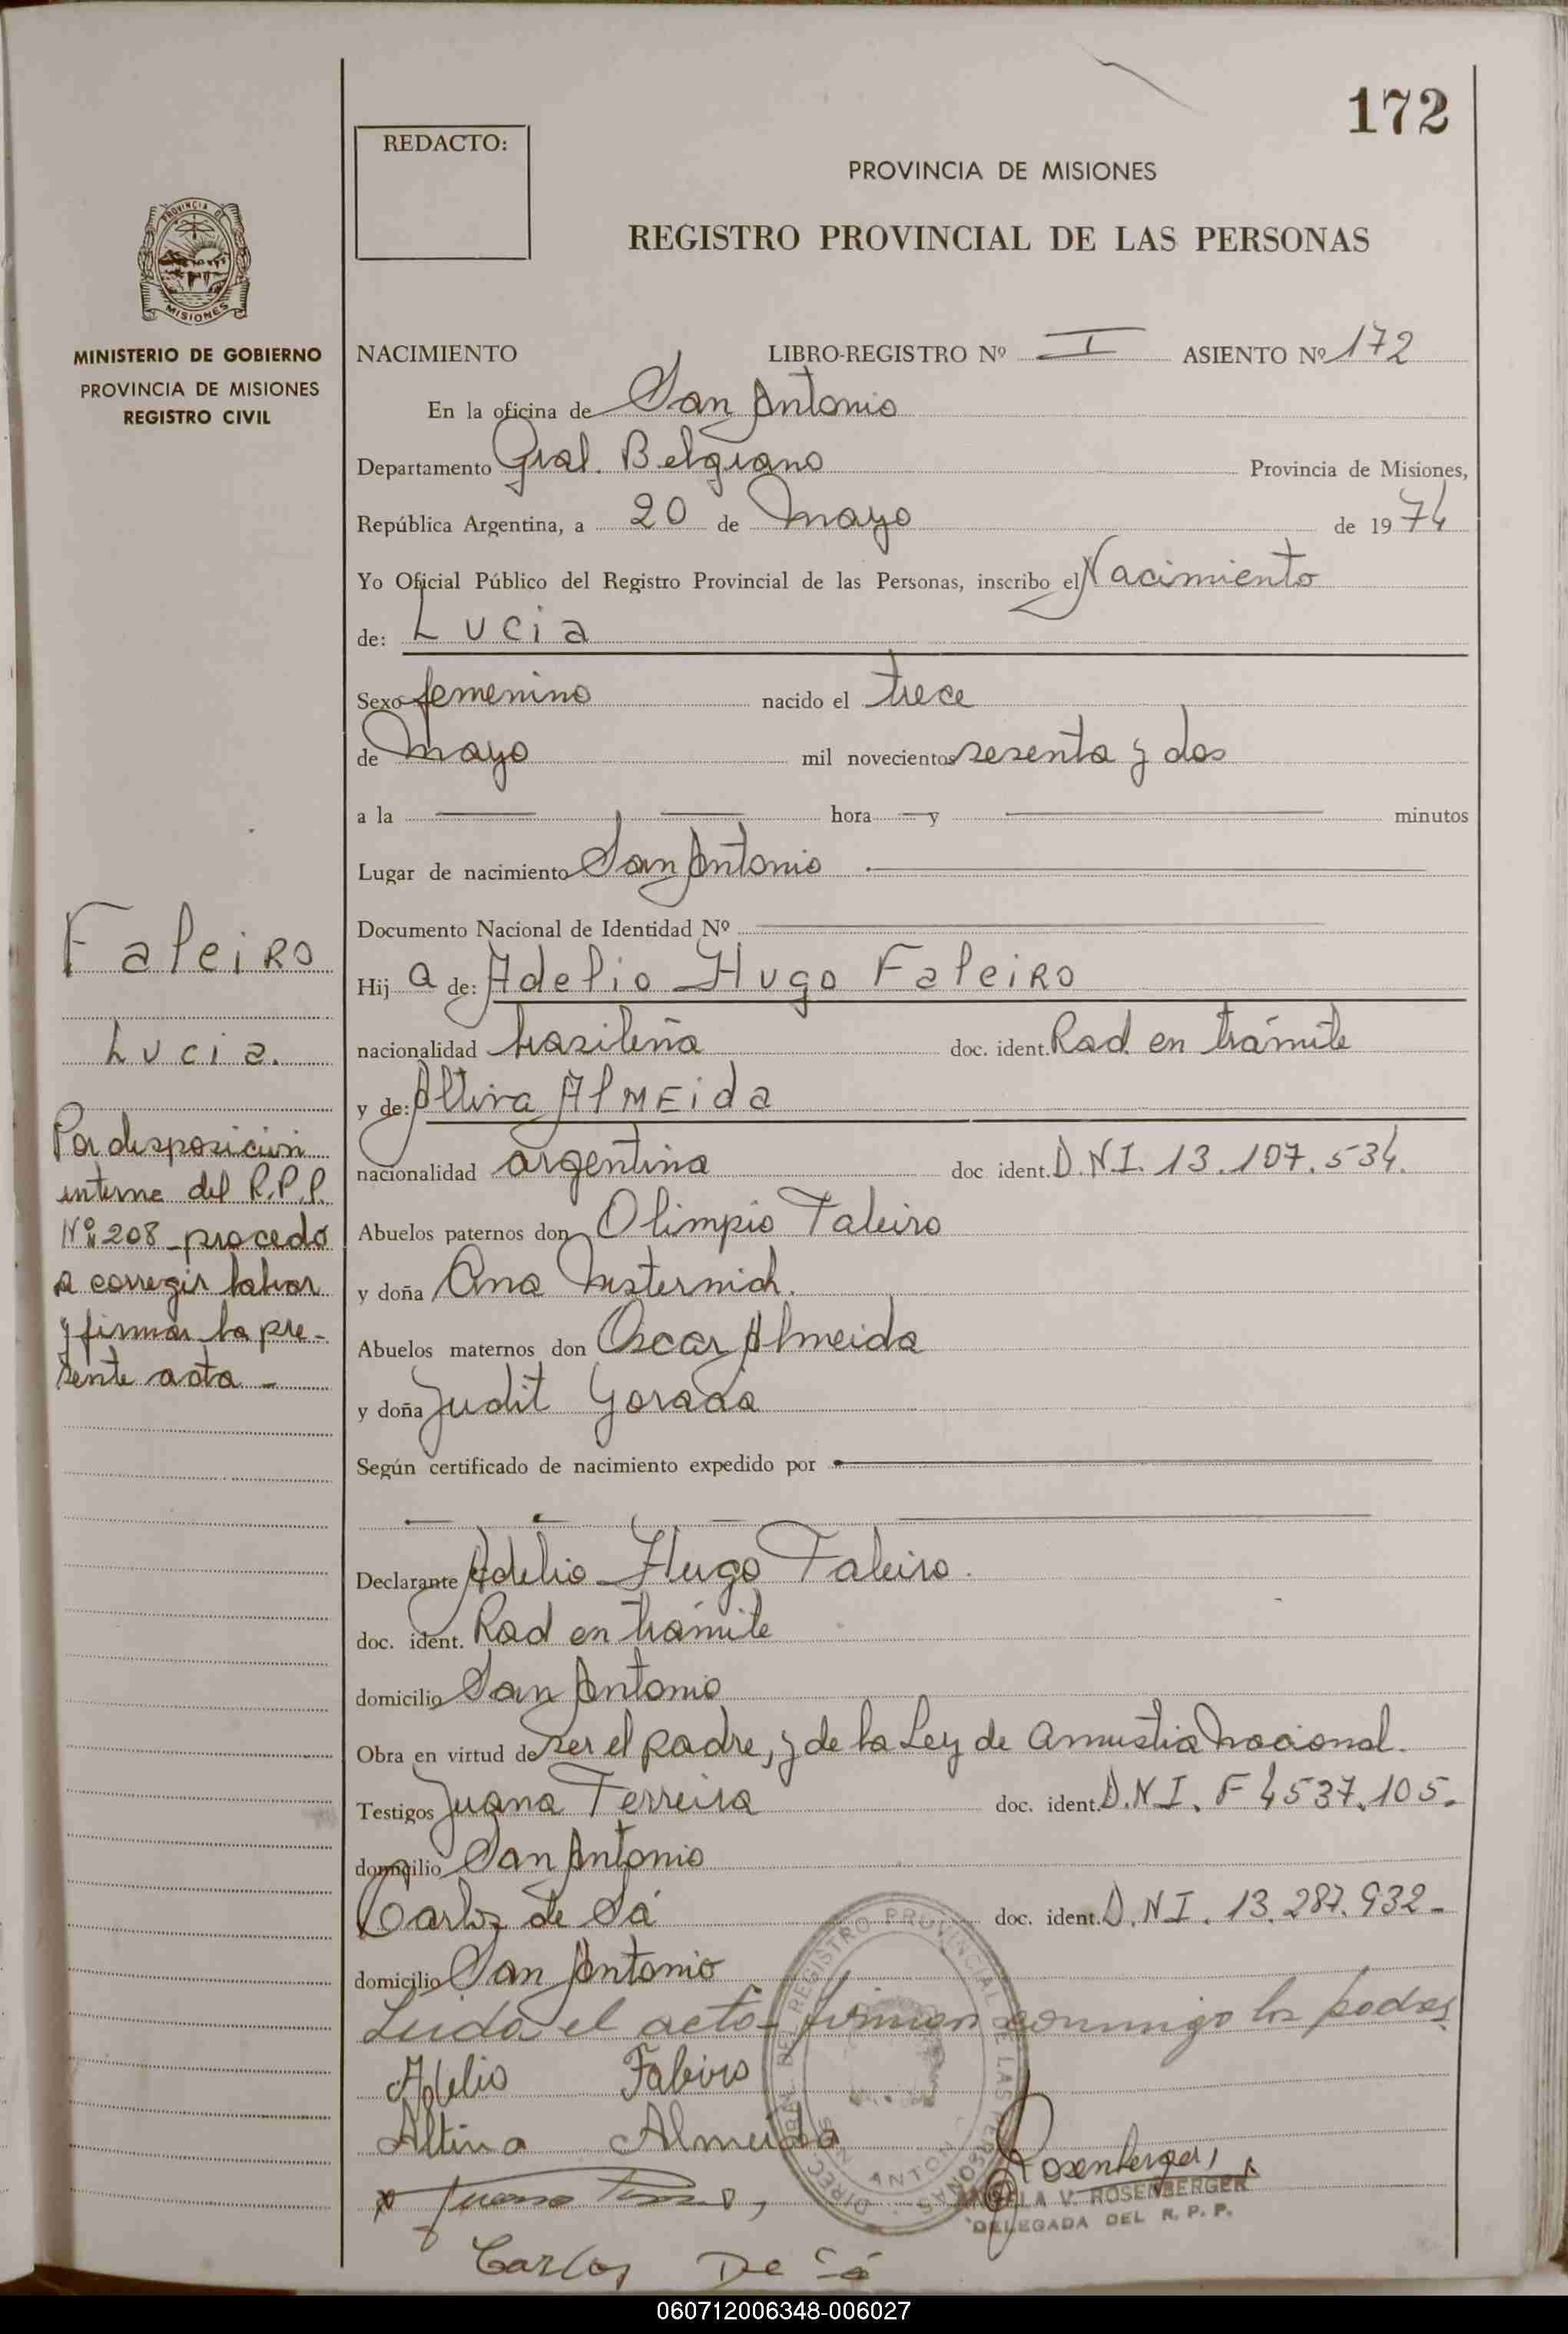 172
REDACTO:
PROVINCIA DE MISIONES
REGISTRO PROVINCIAL DE LAS PERSONAS
PROVINCIA DE
MISIONES
MINISTERIO DE GOBIERNO
PROVINCIA DE MISIONES
REGISTRO CIVIL
NACIMIENTO LIBRO-REGISTRO Nº I ASIENTO Nº 172
En la oficina de San Antonio
Departamento Gral. Belgrano Provincia de Misiones,
República Argentina, a 20 de mayo de 1974
Yo Oficial Público del Registro Provincial de las Personas, inscribo el Nacimiento
de: Lucia
Sexo femenino nacido el trece
de mayo mil novecientos sesenta y dos
a la hora y minutos
Lugar de nacimiento San Antonio
Documento Nacional de Identidad Nº
Hij a de: Adelio Hugo Faleiro
nacionalidad brasileña doc. ident. Rad. en trámite
y de: Altiva Almeida
nacionalidad argentina doc ident. D.N.I. 13.107.534.
Abuelos paternos don Olimpio Faleiro
y doña Ana
Abuelos maternos don Oscar Almeida
y doña Judit
Según certificado de nacimiento expedido por
Declarante Adelio Hugo Faleiro.
doc. ident. Rad en trámite
domicilio San Antonio
Obra en virtud de ser el padre, y de la Ley de amnistia nacional.
Testigos Juana Ferreira doc. ident. D.N.I. F 4537.105.
domicilio San Antonio
Carlos de Sá doc. ident. D.N.I. 13.287.932-
domicilio San Antonio
Leida el acta firman conmigo los padres
Adelio Faleiro
Altina Almeida
Rosenberger
ANGELA V. ROSENBERGER
DELEGADA DEL R. P. P.
Carlos De Sá
DIREC. GRAL. DEL REGISTRO PROVINCIAL DE LAS PERSONAS
SAN ANTONIO
Faleiro
Lucia.
Por disposicion
interna del R.P.P.
Nº 208 procedo
a corregir labrar
y firmar la pre-
sente acta -
060712006348-006027